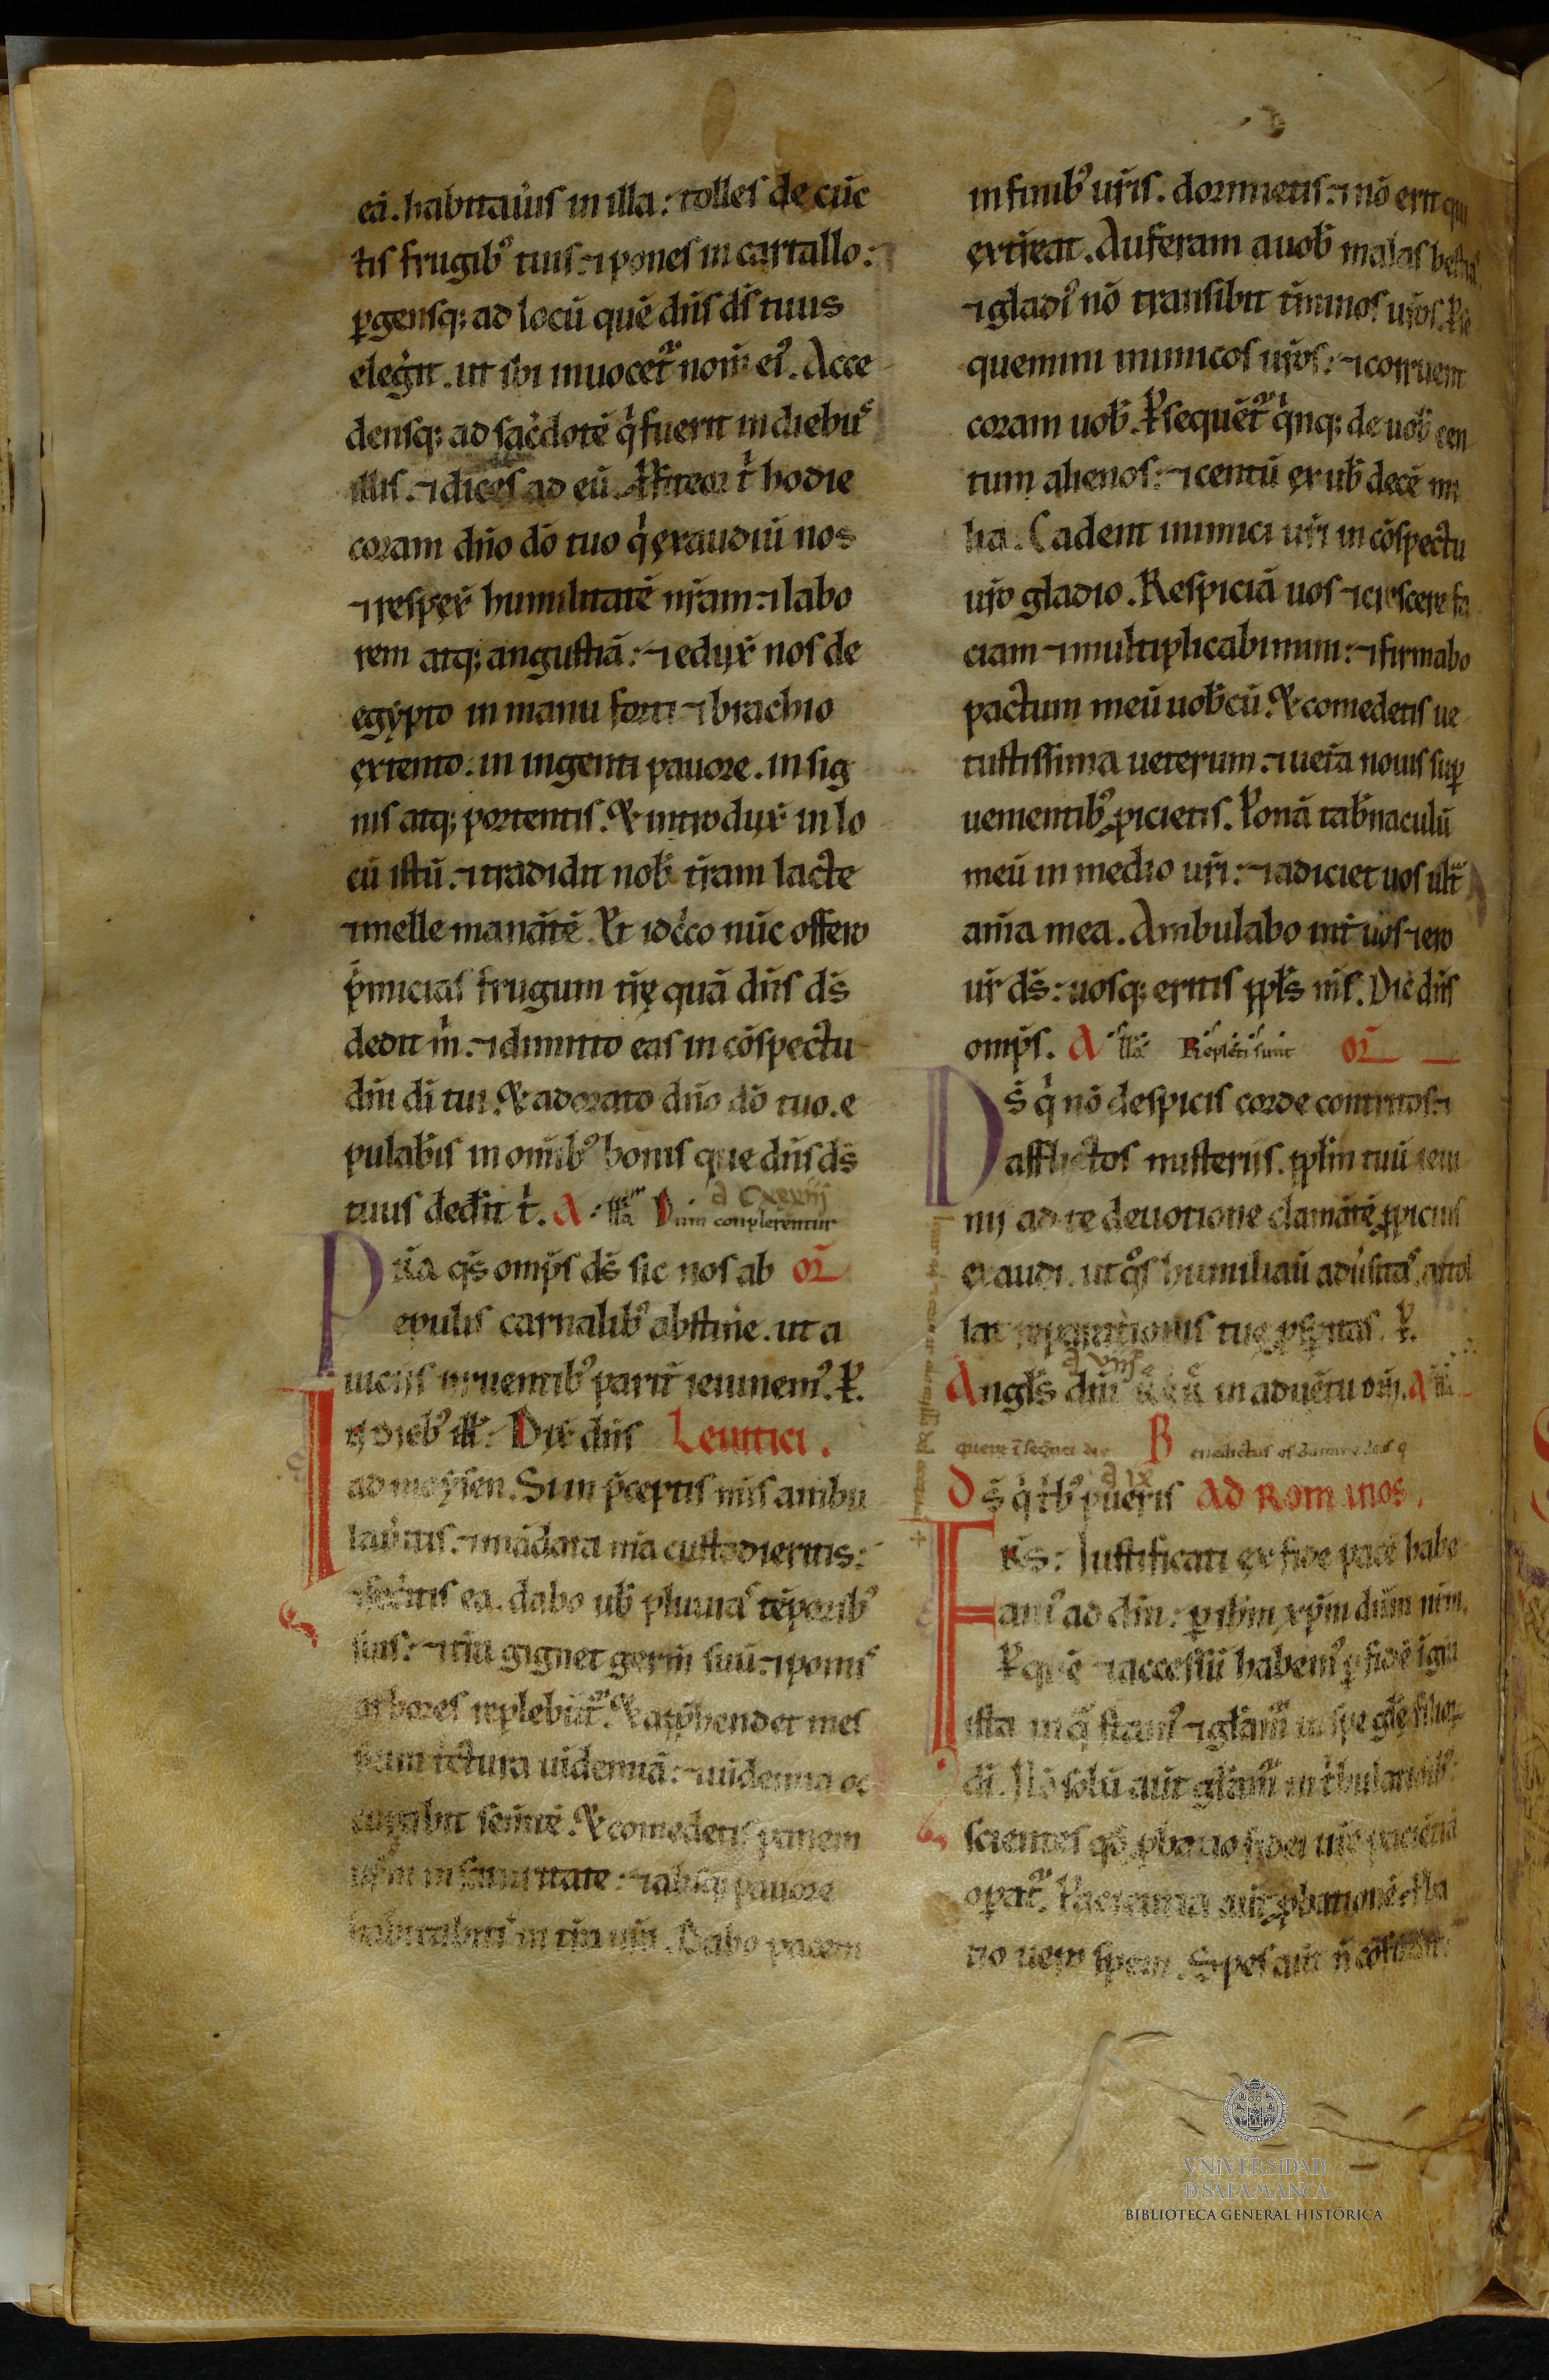 eā. habitau̇is in illa: tolles de cūc
tis frugibꝰ tuis: ⁊ pones in cartallo:
ꝑgensq; ad locū quē dn̄s ds̄ tuus
elegi̇t. ut ibi inuocet᷑ nom̄ eiꝰ. Acce
densq; ad sac̓dotē q̓ fuerit in diebus
illis. ⁊ dices ad eū. Ꝓfiteor t̓ hodie
coram dn̄o dō tuo q̓ exaudiu̓ nos
⁊ respex̓ humilitatē nr̄am: ⁊ labo
rem atq; angustiā: ⁊ eduẋ nos de
egypto in manu forti ⁊ brachio
extento. in ingenti pauore. in sig
nis atq; portentis. Et introdux̓ in lo
cū istū. ⁊ tradidit nob̓ tr̄am lacte
⁊ melle manātē. Et idc̓co nūc offero
p̓micias frugum tr̄ę quā dn̄s ds̄
dedit m̓. ⁊ dimitto eas in cōspectu
dn̄i dī tui. Et adorato dn̄o dō tuo. e
pulab̓is in om̄ibꝰ bonis que dn̄s ds̄
tuus ded̓it t̓. A ll̄a Dum conplerentur
P r̄a qs̄ omp̄s ds̄ sic nos ab or̄
epulis carnalibꝰ abstin̓e. ut a
uiciis irruentibꝰ parit̓ ieiunemꝰ. P̱.
I ṉ diebꝰ ill̓: Dix̓ dn̄s Leuitici.
ad moysen. Si in p̄ceptis m̄is ambu
lau̓itis. ⁊ mādata m̄a custodieritis:
⁊ fec̓itis ea. dabo ub̓ pluuias tēporibꝰ
suis: ⁊ tr̄a gignet germ̄ suū. ⁊ pomis
arbores replebūt᷑. Et app̄hendet mes
sium t̓tura uidemiā: ⁊ uidemia oc
cupabit sem̄tē. Et comedetis panem
ur̄m in saturitate: ⁊ absq; pauore
habitabitis in tr̄a ur̄a. Dabo pacem
in finibꝰ ur̄is. dormietis: ⁊ nō erit qui
exterreat. Auferam a uob̓ malas bestias
⁊ gladiꝰ nō transibit t̓minos ur̄os. Ꝑse
quemini inimicos ur̄os: ⁊ corruent
coram uob̓. Ꝑsequēt᷑ q̓nq; de uob̓ cen
tum alienos: ⁊ centū ex ub̓ decē mi
lia. Cadent inimici ur̄i in cōspectu
ur̄o gladio. Respiciā uos ⁊ crescere fa
ciam ⁊ multiplicabimini: ⁊ firmabo
pactum meū uob̓cū. Et comedetis ue
tustissima ueterum. ⁊ uet̓a nouis suꝑ
uenientibꝰ ꝓicietis. Ponā tab̓naculū
meū in medio ur̄i: ⁊ n̄ adiciet uos ult̓
ani̓a mea. Ambulabo int̓ uos ⁊ ero
ur̄ ds̄: uosq; eritis ppl̄s m̄s. Dic̓ dn̄s
omp̄s. A ll̄a Repleti sunt or̄
D s̄ q̓ nō despicis corde contritos ⁊
afflictos misteriis. ppl̄m tuū ieiu
nij ad te deuotione clamātē ꝓpicius
exaudi. ut qͦs humiliau̓ adu̓sitas, attol
lat reparationis tuę ꝓsp̄itas. P̱.
Angl̄s dn̄i in aduētu dn̄i. A ll̄a
B enedictus es
D s̄ q̓ t̓bꝰ pueris Ad Romanos.
F rs̄: Justificati ex fide pacē habe
amꝰ ad dm̄: ꝑ ihm̄ xp̄m dn̄m nr̄m.
Ꝑ quē ⁊ accessū habemꝰ ꝑ fidē ī gr̄a
ista in q̄ stamꝰ ⁊ gl̄am᷑ in spe gl̄ę filioꝝ
dī. Nō solū aūt gl̄am᷑ in t̓bulationibꝰ:
scientes qd̄ t̓bulatio
oꝑat᷑. Paciencia aūt ꝓbationē. ꝓba
tio uero spem. Spes aūt n̄ cōfundit:
VNiVERSiDAD
D SALAMANCA
BIBLIOTECA GENERAL HISTÓRICA